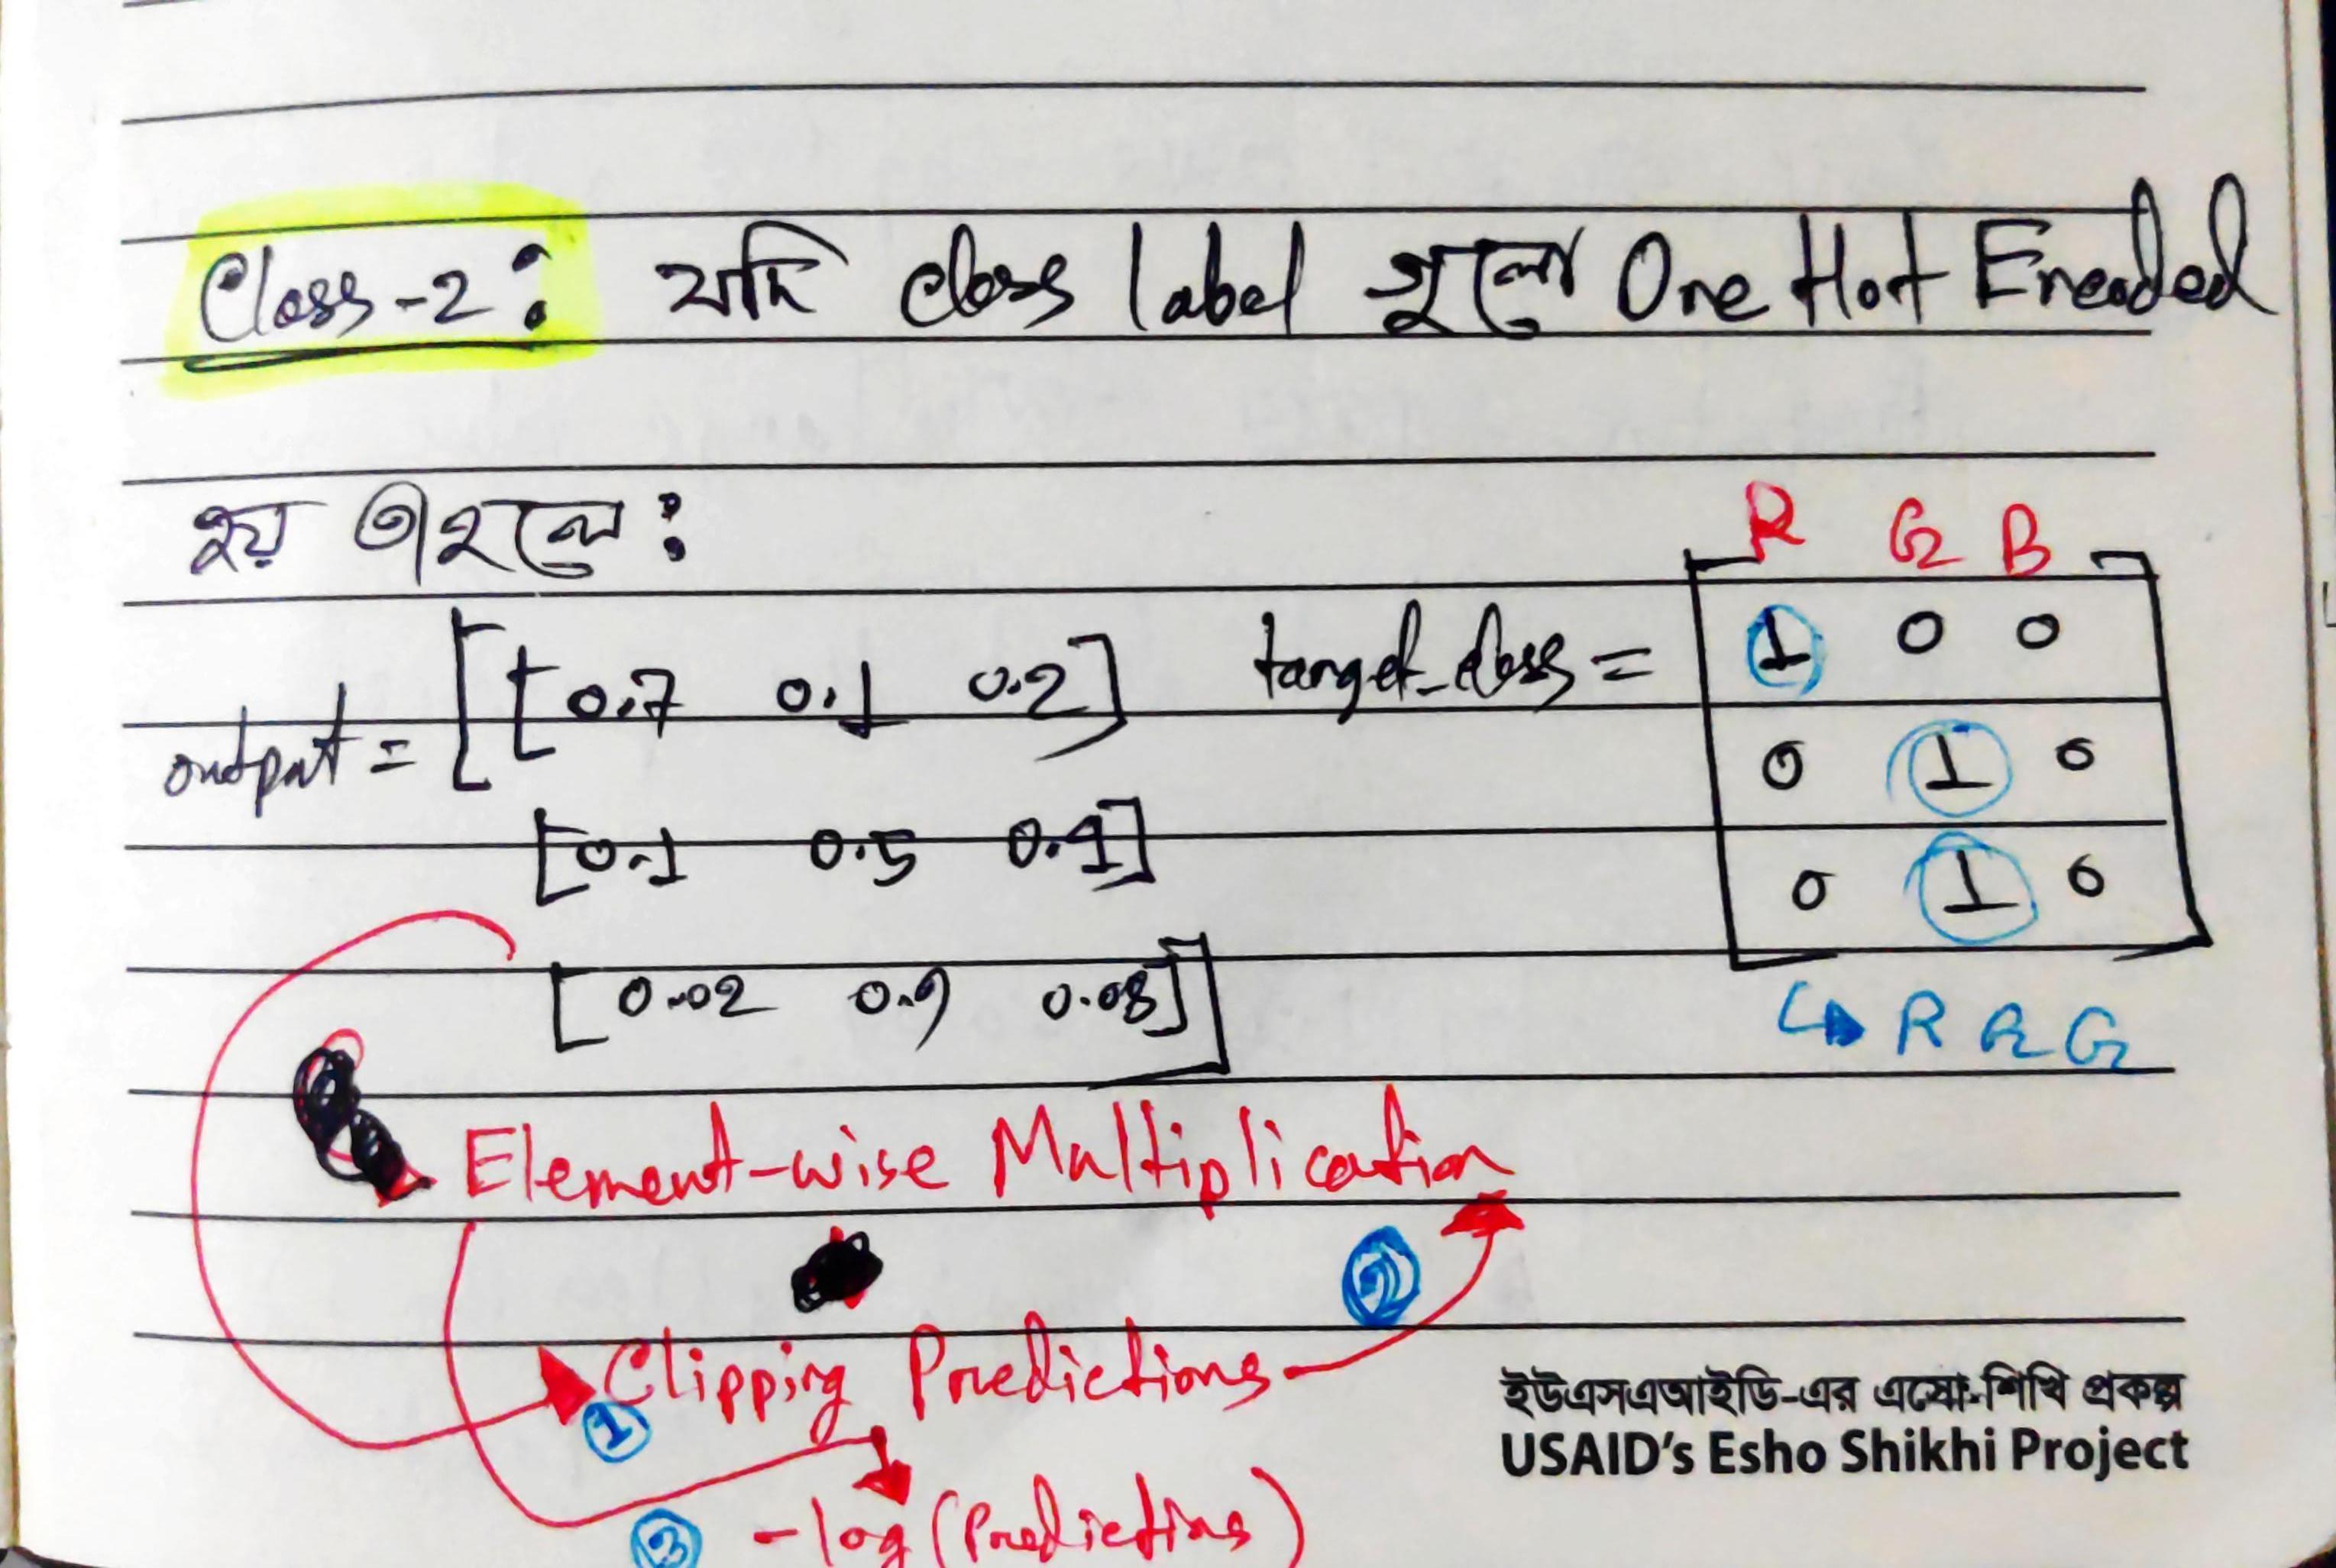 Class-2: যদি class label গুলো One Hot Encoded
হয় তাহলে:
R G B
output = [[0.7 0.1 0.2] target_class = [1 0 0
0 1 0
[0.1 0.5 0.4]
0 1 0]
[0.02 0.9 0.08]]
↳ R G G
Element-wise Multiplication
2
Clipping Predictions
1
3 -log(Predictions)
ইউএসএআইডি-এর এসো-শিখি প্রকল্প
USAID's Esho Shikhi Project